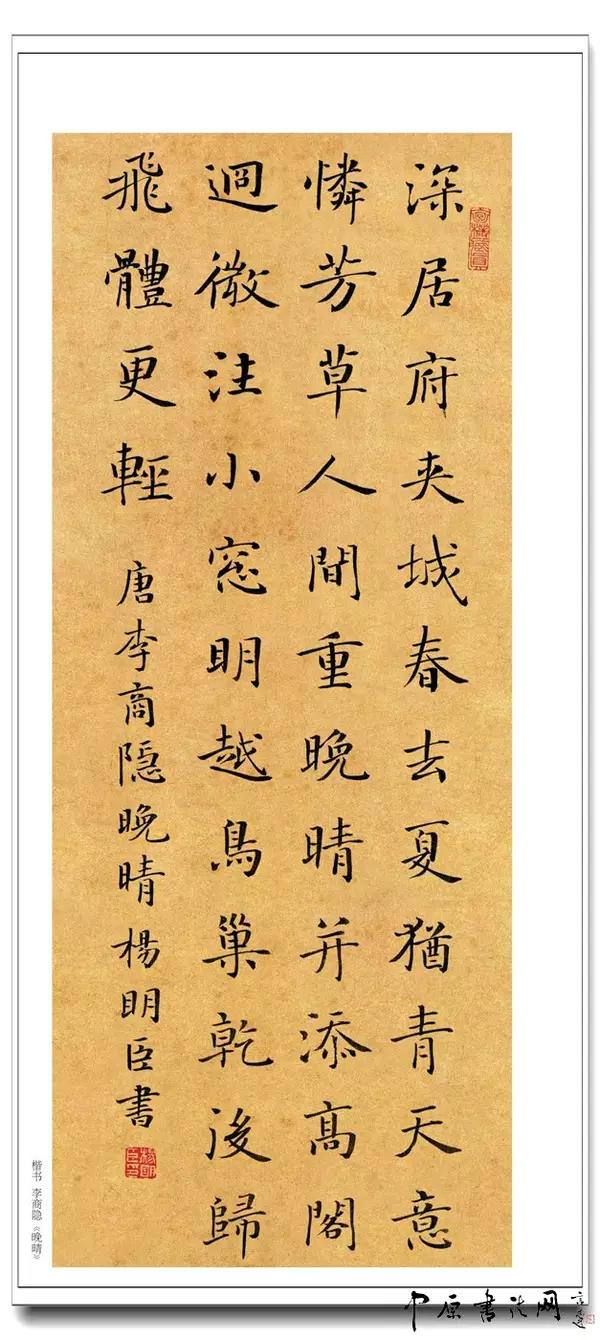 深居府夾城春去夏猶青天意
憐芳草人間重晚晴并添高閣
逈微注小窓明越鳥巢乾後歸
飛體更輕 唐李商隐晚晴楊明臣書
楷书 李商隐《晚晴》
中原書法网